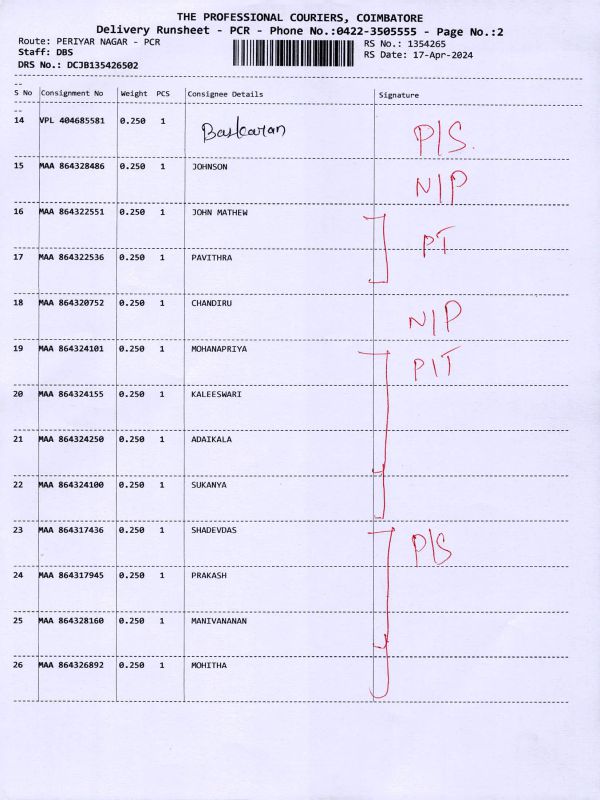 THE PROFESSIONAL COURIERS, COIMBATORE
Delivery Runsheet - PCR - Phone No.:0422-3505555 - Page No.:2
Route: PERIYAR NAGAR - PCR RS No.: 1354265
Staff: DBS RS Date: 17-Apr-2024
DRS No.: DCJB135426502
S No Consignment No Weight PCS Consignee Details Signature
14 VPL 404685581 0.250 1 Baskaran P/S.
15 MAA 864328486 0.250 1 JOHNSON N/P
16 MAA 864322551 0.250 1 JOHN MATHEW PT
17 MAA 864322536 0.250 1 PAVITHRA
18 MAA 864320752 0.250 1 CHANDIRU N/P
19 MAA 864324101 0.250 1 MOHANAPRIYA P/T
20 MAA 864324155 0.250 1 KALEESWARI
21 MAA 864324250 0.250 1 ADAIKALA
22 MAA 864324100 0.250 1 SUKANYA
23 MAA 864317436 0.250 1 SHADEVDAS P/S
24 MAA 864317945 0.250 1 PRAKASH
25 MAA 864328160 0.250 1 MANIVANANAN
26 MAA 864326892 0.250 1 MOHITHA